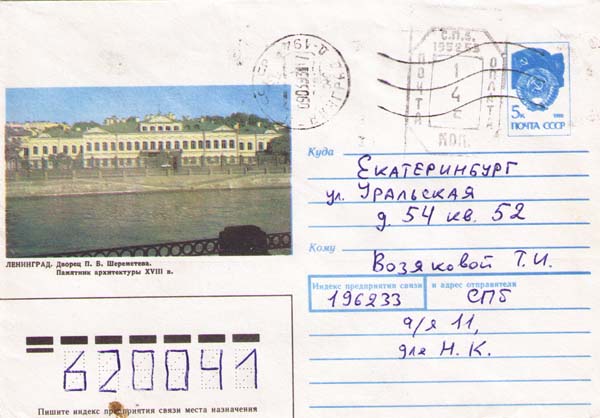 С.П.Б.
195253
ПОЧТА
14
КОП.
ОПЛАТА
5к
1988
ПОЧТА СССР
Куда
Екатеринбург
ул. Уральская
д. 54 кв. 52
ЛЕНИНГРАД. Дворец П. Б. Шереметева.
Памятник архитектуры XVIII в.
Кому
Возяковой Т.И.
Индекс предприятия связи
и адрес отправителя
196233
СПб
а/я 11,
для Н.К.
620041
Пишите индекс предприятия связи места назначения